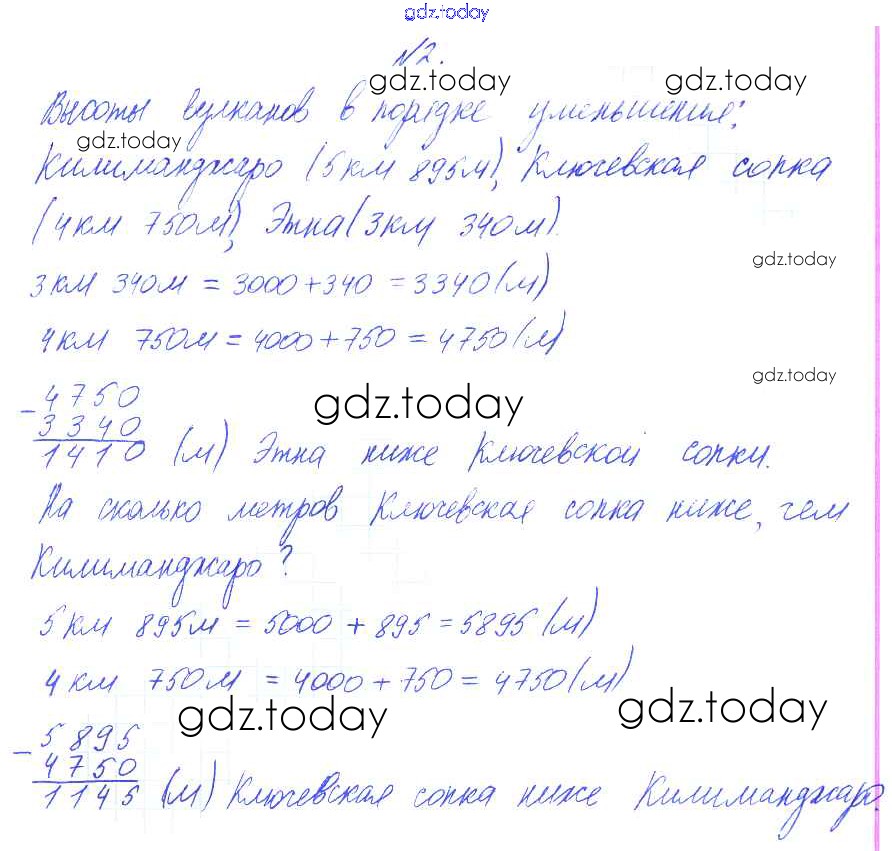 gdz.today
№2.
gdz.today gdz.today
Высоты вулканов в порядке уменьшения:
gdz.today
Килиманджаро (5км 895м), Ключевская сопка
(4км 750м), Этна (3км 340м).
gdz.today
3км 340м = 3000+340 = 3340(м)
4км 750м = 4000+750 = 4750(м)
gdz.today
- 4750
gdz.today
3340
1410 (м) Этна ниже Ключевской сопки.
На сколько метров Ключевская сопка ниже, чем
Килиманджаро?
5км 895м = 5000 + 895 = 5895(м)
4км 750м = 4000+750 = 4750(м)
gdz.today gdz.today
- 5895
4750
1145 (м) Ключевская сопка ниже Килиманджаро.